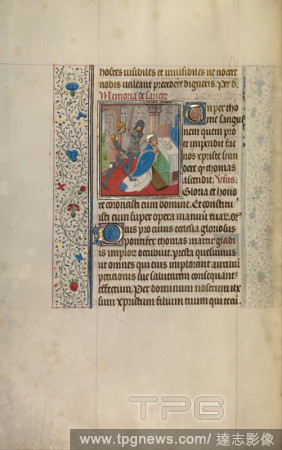 hostes visibiles et invisibiles ne nocere
nobis valeant precedere digneris. Per d
Memoria de sancto
Tu per tho
me sangui
nem quem pro
te impendit fac
nos xpriste scan
dere qo thomas
ascendit. Vsus.
Gloria et hono
re coronasti eum domine. Et constitu
isti eum super opera manuum tuar. or
Deus pro cuius ecclesia gloriosus
pontifex thomas martir gladiis
impior occubuit. presta quesumus
ut omnes qui eius implorant auxilium
peticionis sue salutarem consequantur
effectum. Per dominum nostrum ihx
sum xpristum filium tuum qui tecu.
TPG
www.tpgnews.com/ 達志影像